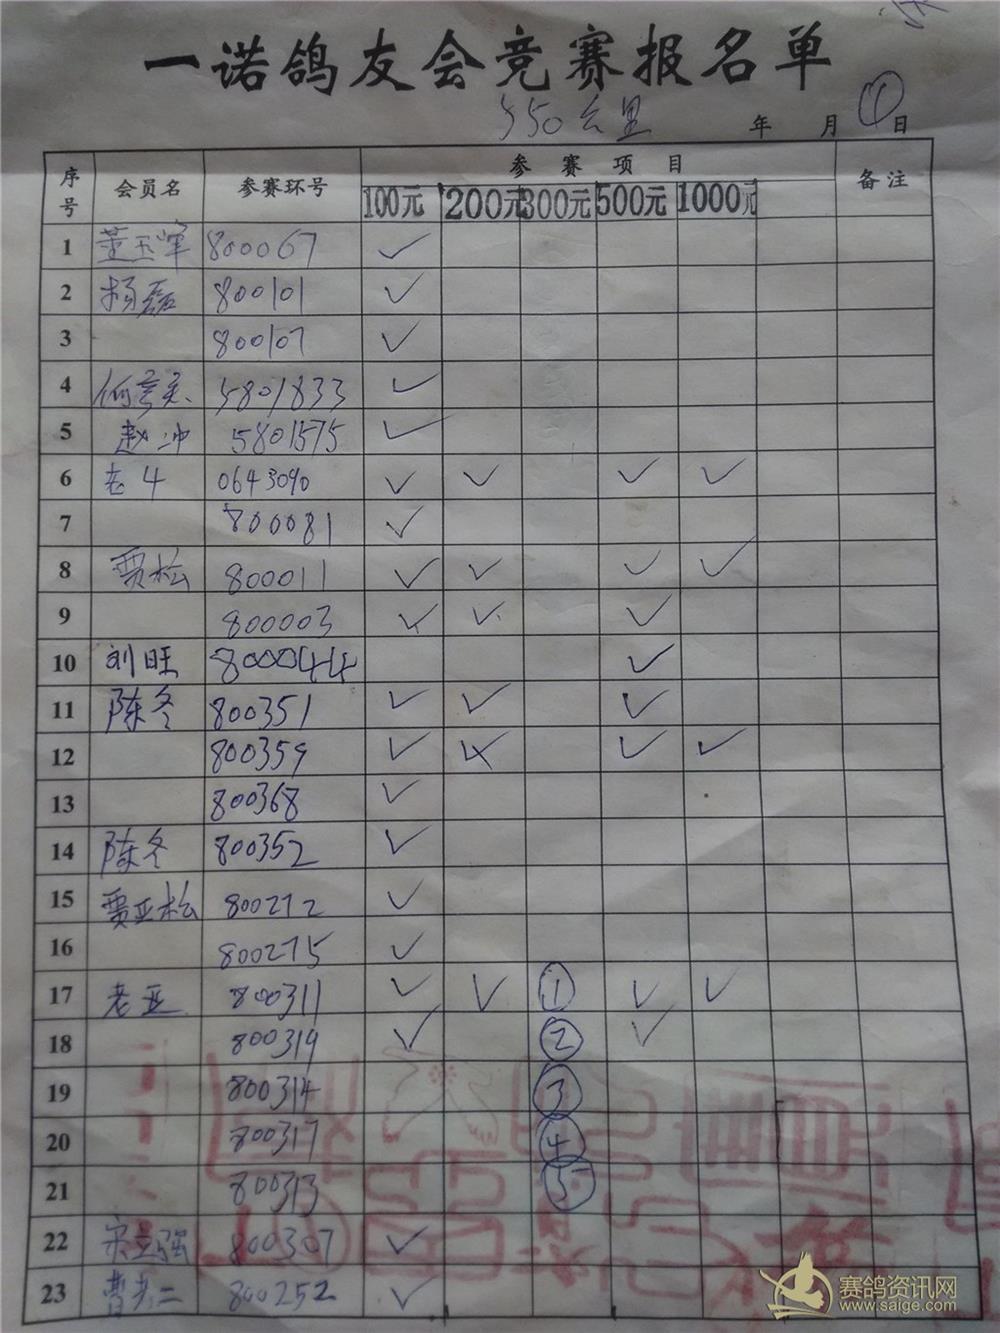 一诺鸽友会竞赛报名单
550公里 年 月 ① 日
序号 会员名 参赛环号 参赛项目 备注
100元 200元 300元 500元 1000元
1 800067 ✓
2 杨磊 800101 ✓
3 800107 ✓
4 5801833 ✓
5 赵冲 5801575 ✓
6 老4 0643090 ✓ ✓ ✓ ✓
7 800081 ✓
8 贾松 800011 ✓ ✓ ✓ ✓
9 800003 ✓ ✓ ✓
10 刘旺 800044 ✓
11 陈冬 800351 ✓ ✓ ✓
12 800359 ✓ ✓ ✓ ✓
13 800368 ✓
14 陈冬 800352 ✓
15 贾亚松 800272 ✓
16 800275 ✓
17 老亚 800311 ✓ ✓ ① ✓ ✓
18 800319 ✓ ② ✓
19 800314 ③
20 800317 ④
21 800313 ⑤
22 宋立强 800307 ✓
23 曹老二 800252 ✓
赛鸽资讯网
www.saige.com